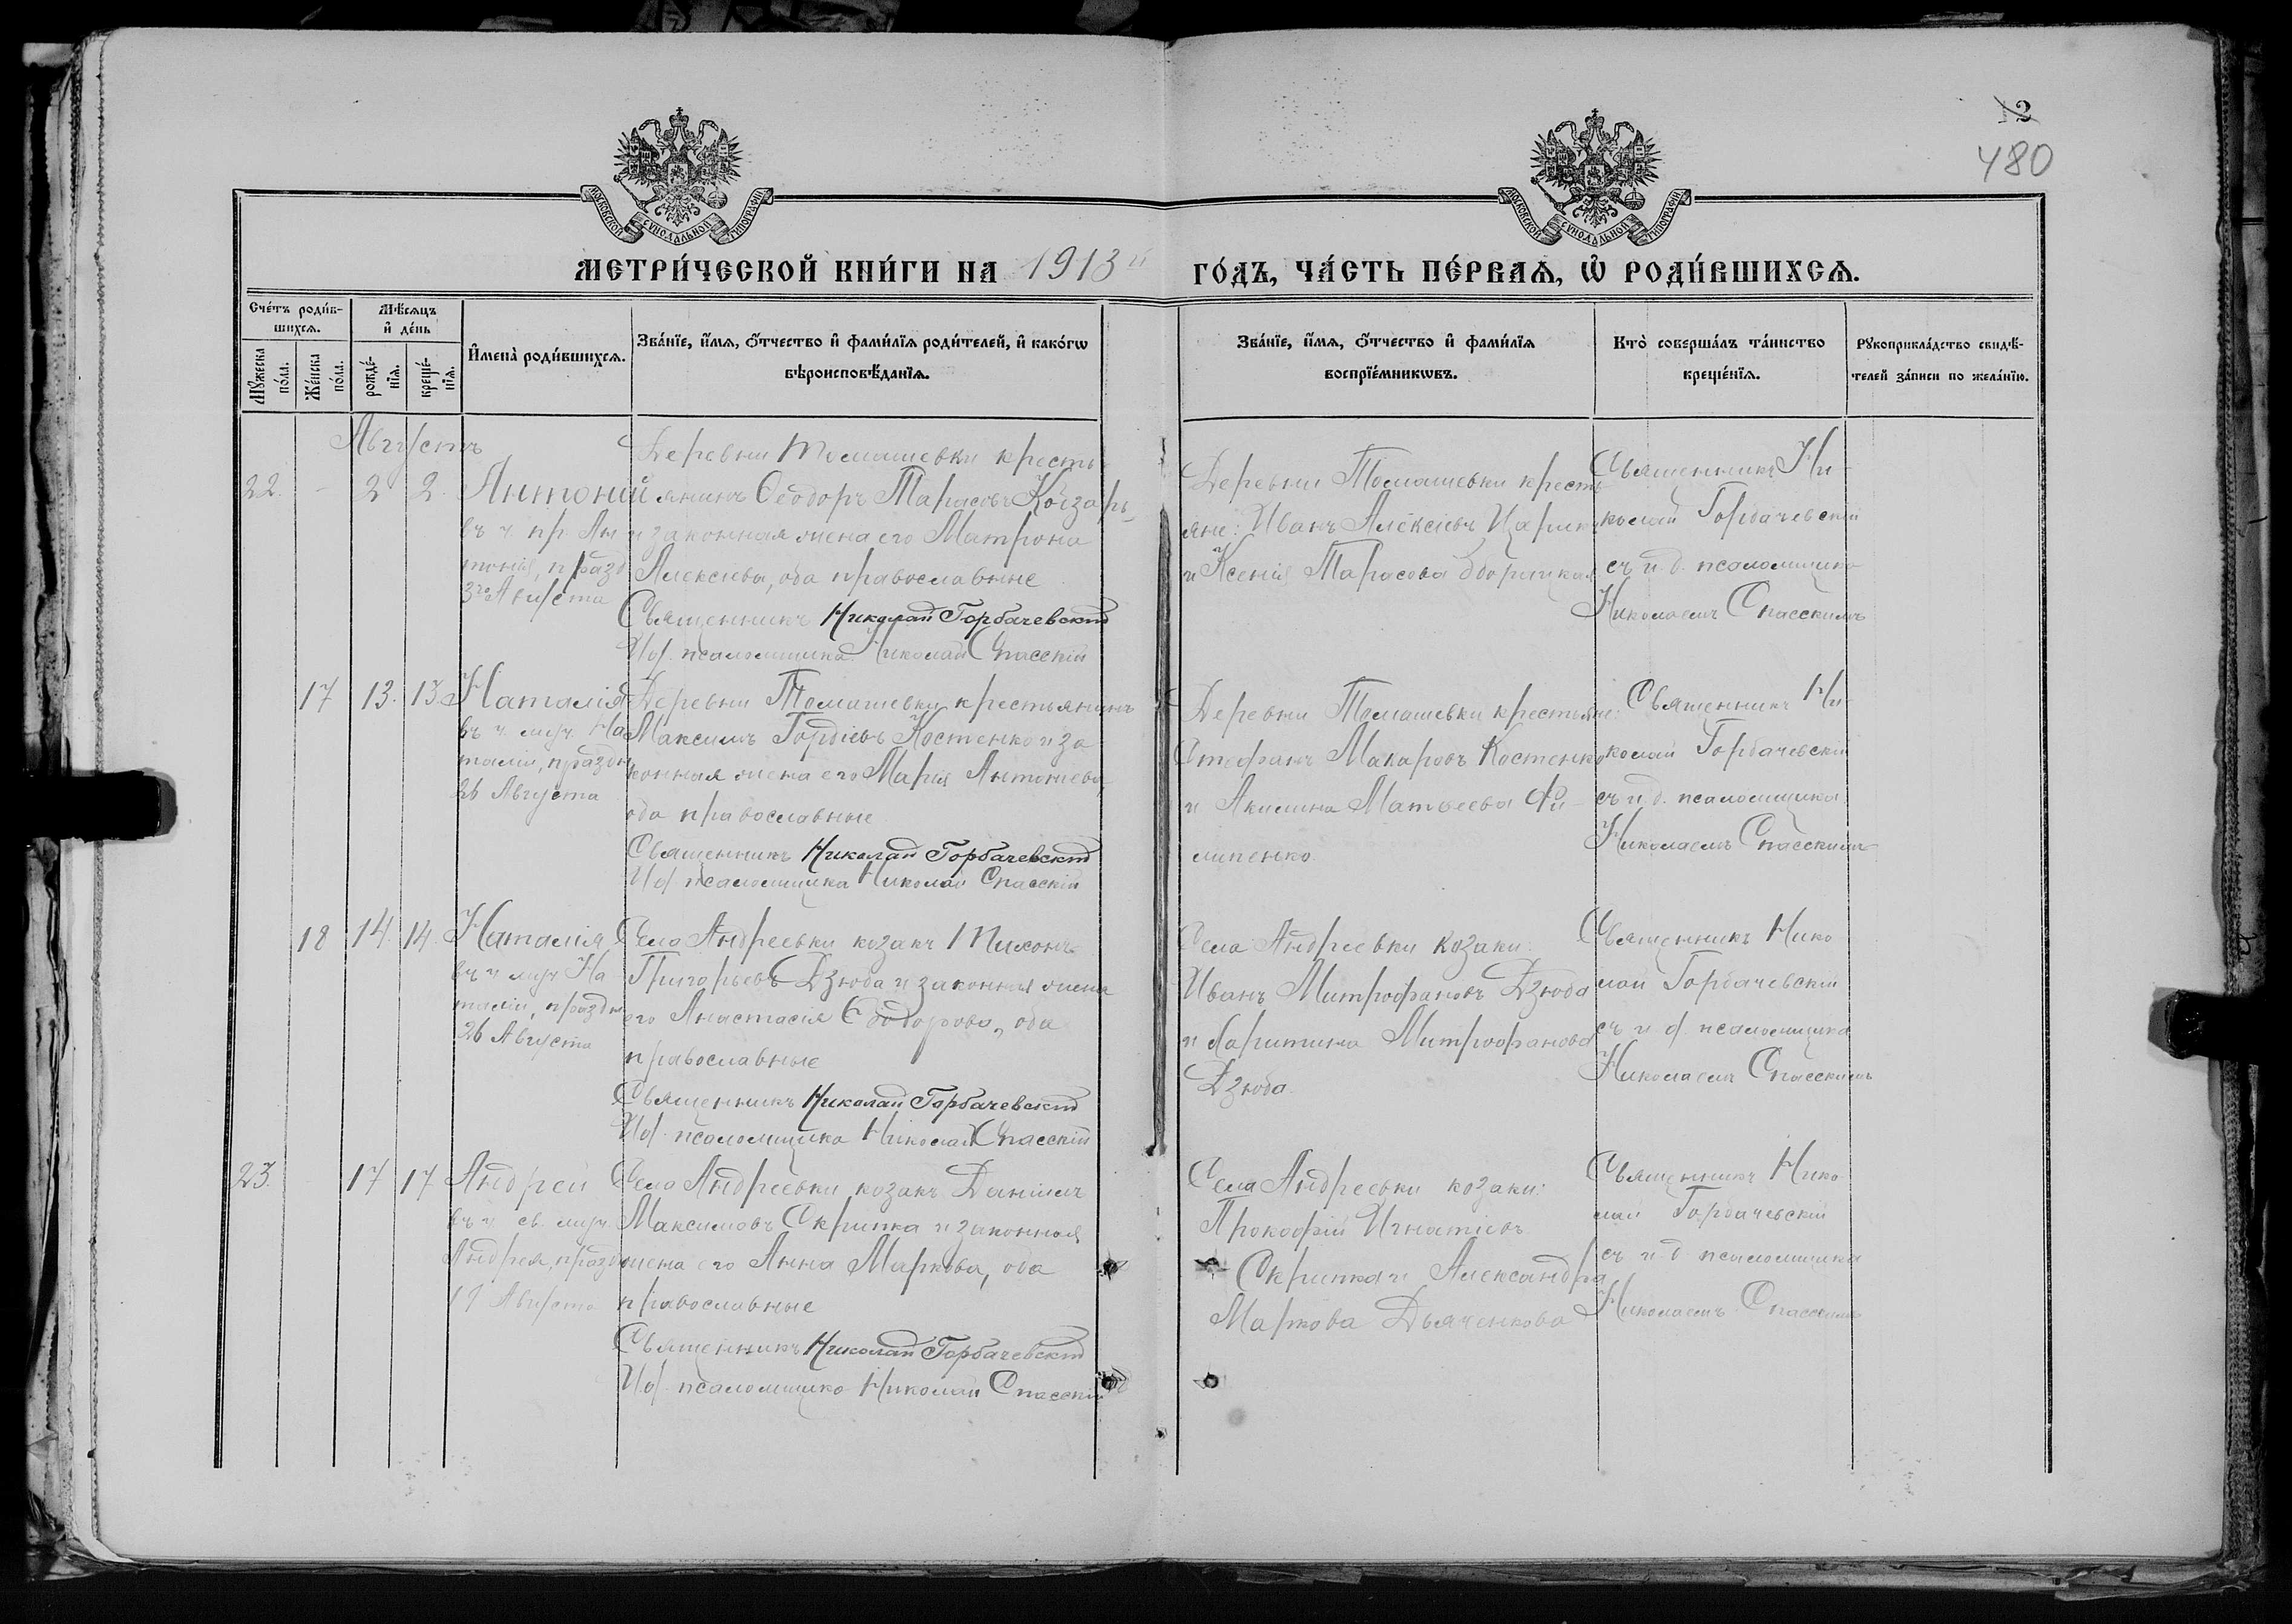 12
480
МОСКОВСКОЙ СѴНОДАЛЬНОЙ ТИПОГРАФІИ
МОСКОВСКОЙ СѴНОДАЛЬНОЙ ТИПОГРАФІИ
МЕТРИ́ЧЕСКОЙ КНИ́ГИ НА 1913й ГО́ДЪ, ЧА́СТЬ ПЕ́РВАѦ, Ѡ҆ РОДИ́ВШИХСѦ.
Сче́тъ роди́в-
шихсѧ.
Мѣ́сѧцъ
и҆ де́нь
Мꙋ́жеска
по́ла.
Же́нска
по́ла.
рожде́-
нїѧ.
креще́-
нїѧ.
И҆мена̀ роди́вшихсѧ.
Зва́нїе, и҆́мѧ, ѻ҆́тчество и҆ фами́лїѧ роди́телей, и҆ како́гѡ
вѣроисповѣ́данїѧ.
Зва́нїе, и҆́мѧ, ѻ҆́тчество и҆ фами́лїѧ
воспрїе́мникѡвъ.
Кто̀ соверша́лъ та́инство
креще́нїѧ.
Рꙋкоприкла́дство свидѣ́-
телей за́писи по жела́нїю.
Августъ
22. - 2 2.
Антоній
въ ч. пр. Ан
тонія, празд
3го Августа
Деревни Томашевки кресть-
янинъ Ѳеодоръ Тарасовъ Кобзарь
и законная жена его Матрона
Алексіева, оба православные
Священникъ Николай Горбачевскій
И об. псаломщика Николай Спасскій
Деревни Томашевки кресть-
яне: Иванъ Алексіевъ
и Ксенія Тарасова
Священникъ Ни-
колай Горбачевскій
съ и. д. псаломщика
Николаемъ Спасскимъ
17 13. 13.
Наталія
въ ч. муч. На
таліи, праздн.
26 Августа
Деревни Томашевки крестьянинъ
Максимъ Гордіевъ Костенко и за
конная жена его Марія Антоніева,
оба православные
Священникъ Николай Горбачевскій
И об. псаломщика Николай Спасскій
Деревни Томашевки крестьяне:
Стефанъ Макаровъ Костенко
и Акилина Матѳеева Фи-
липенко.
Священникъ Ни-
колай Горбачевскій
съ и. д. псаломщика
Николаемъ Спасскимъ
18 14. 14.
Наталія
въ ч. муч. На
таліи, праздн
26 Августа
Села Андреевки козакъ Тихонъ
Григорьевъ Дзюба и законная жена
его Анастасія Ѳеодорова, оба
православные
Священникъ Николай Горбачевскій
И об. псаломщика Николай Спасскій
Села Андреевки козаки:
Иванъ Митрофановъ Дзюба
и Харитина Митрофанова
Дзюба.
Священникъ Нико
лай Горбачевскій
съ и д. псаломщика
Николаемъ Спасскимъ
23. 17 17
Андрей
въ ч. св. муч.
Андрея, праздн
19 Августа
Села Андреевки козакъ Даніилъ
Максимовъ Скрипка и законная
жена его Анна Маркова, оба
православные
Священникъ Николай Горбачевскій
И об. псаломщика Николай Спасскій
Села Андреевки козаки:
Прокофій Игнатіевъ
Скрипка и Александра
Маркова Дьяченкова
Священникъ Нико
лай Горбачевскій
съ и. д. псаломщика
Николаемъ Спасскимъ